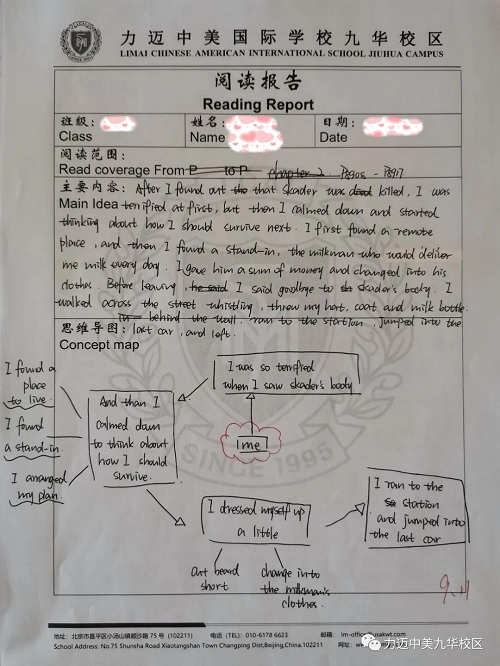 力迈中美国际学校九华校区
LIMAI CHINESE AMERICAN INTERNATIONAL SCHOOL JIUHUA CAMPUS
阅读报告
Reading Report
班级:
Class
姓名:
Name
日期:
Date
阅读范围:
Read coverage From P to P chapter 2
主要内容: After I found out tho that skader was dead killed, I was
Main Idea terrified at first, but then I calmed down and started
thinking about how I should survive next. I first found a remote
place, and then I found a stand-in, the milkman who would deliver
me milk every day. I gave him a sum of money and changed into his
clothes. Before leaving, he said I said goodbye to sk skader's body. I
walked across the street whistling, threw my hat, coat and milk bottle
in behind the wall. ran to the station, jumped into the
思维导图: last car, and left.
Concept map
I was so terrified
when I saw skader's body
me
And than I
calmed down
to think about
how I should
survive.
I found a
place
to live.
I found
a stand-in.
I arranged
my plan.
I dressed myself up
a little
cut beard
short
change into
the milkman's
clothes.
I ran to the
station
and jumped into
the last car
9.11
SINCE 1995
地址: 北京市昌平区小汤山镇顺沙路 75 号 (102211)
电话 (TEL): 010-6178 6623
邮箱:
School Address: No.75 Shunsha Road Xiaotangshan Town Changping Dist,Beijing,China.102211
力迈中美九华校区